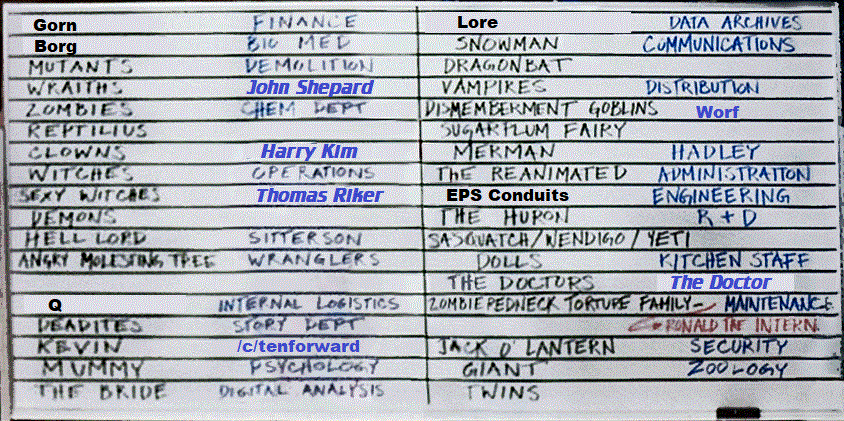 Gorn FINANCE
Borg BIO MED
MUTANTS DEMOLITION
WRAITHS John Shepard
ZOMBIES CHEM DEPT
REPTILIUS
CLOWNS Harry Kim
WITCHES OPERATIONS
SEXY WITCHES Thomas Riker
DEMONS
HELL LORD SITTERSON
ANGRY MOLESTING TREE WRANGLERS
Q INTERNAL LOGISTICS
DEADITES STORY DEPT
KEVIN /c/tenforward
MUMMY PSYCHOLOGY
THE BRIDE DIGITAL ANALYSIS
Lore DATA ARCHIVES
SNOWMAN COMMUNICATIONS
DRAGONBAT
VAMPIRES DISTRIBUTION
DISMEMBERMENT GOBLINS Worf
SUGARPLUM FAIRY
MERMAN HADLEY
THE REANIMATED ADMINISTRATION
EPS Conduits ENGINEERING
THE HURON R + D
SASQUATCH/WENDIGO/YETI
DOLLS KITCHEN STAFF
THE DOCTORS The Doctor
ZOMBIE REDNECK TORTURE FAMILY - MAINTENANCE
RONALD THE INTERN
JACK O' LANTERN SECURITY
GIANT ZOOLOGY
TWINS